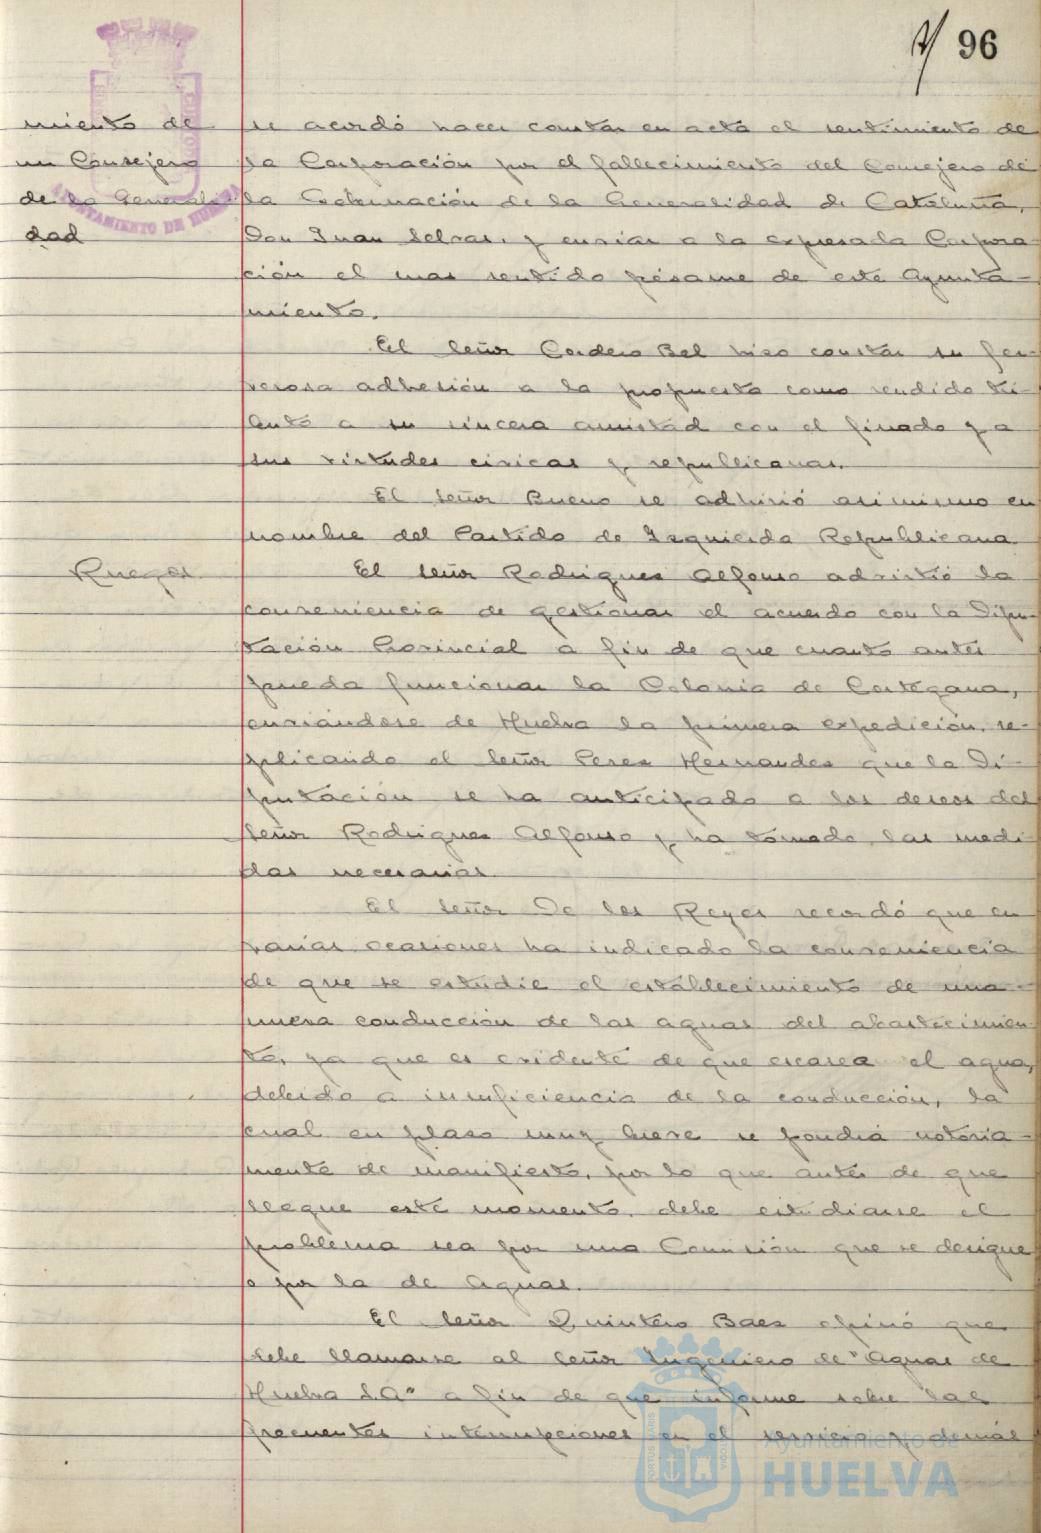 96
miento de
un Consejero
de la Generali
dad
se acordó hacer constar en acta el sentimiento de
la Corporación por el fallecimiento del Consejero de
la Gobernación de la Generalidad de Cataluña,
Don Juan Selvas, y enviar a la expresada Corpora-
ción el mas sentido pésame de este Ayunta-
miento.
El Señor Cordero Bel hizo constar su fer-
verosa adhesión a la propuesta como rendido tri-
buto a su sincera amistad con el finado y a
sus virtudes cívicas y republicanas.
El Señor Bueno se adhirió asimismo en
nombre del Partido de Izquierda Republicana
Ruegos.
El Señor Rodriguez Alfonso advirtió la
conveniencia de gestionar el acuerdo con la Dipu-
tación Provincial a fin de que cuanto antes
pueda funcionar la Colonia de Cortegana,
enviándose de Huelva la primera expedición, re-
plicando el Señor Perez Hernandez que la Di-
putación se ha anticipado a los deseos del
Señor Rodriguez Alfonso y ha tomado las medi-
das necesarias.
El Señor De los Reyes recordó que en
varias ocasiones ha indicado la conveniencia
de que se estudie el establecimiento de una
nueva conducción de las aguas del abastecimien-
to, ya que es evidente de que escasea el agua,
debido a insuficiencia de la conducción, la
cual en plazo muy breve se pondrá notoria-
mente de manifiesto, por lo que antes de que
llegue este momento, debe estudiarse el
problema sea por una Comisión que se designe
o por la de Aguas.
El Señor Quintero Baez opinó que
debe llamarse al Señor Ingeniero de "Aguas de
Huelva S.A" a fin de que informe sobre las
frecuentes interrupciones en el servicio y demás
AYUNTAMIENTO DE HUELVA
PORTUS MARIS
Ayuntamiento de
HUELVA